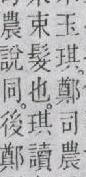 玉琪。鄭司農
束髮也。琪讀
農說同。後鄭